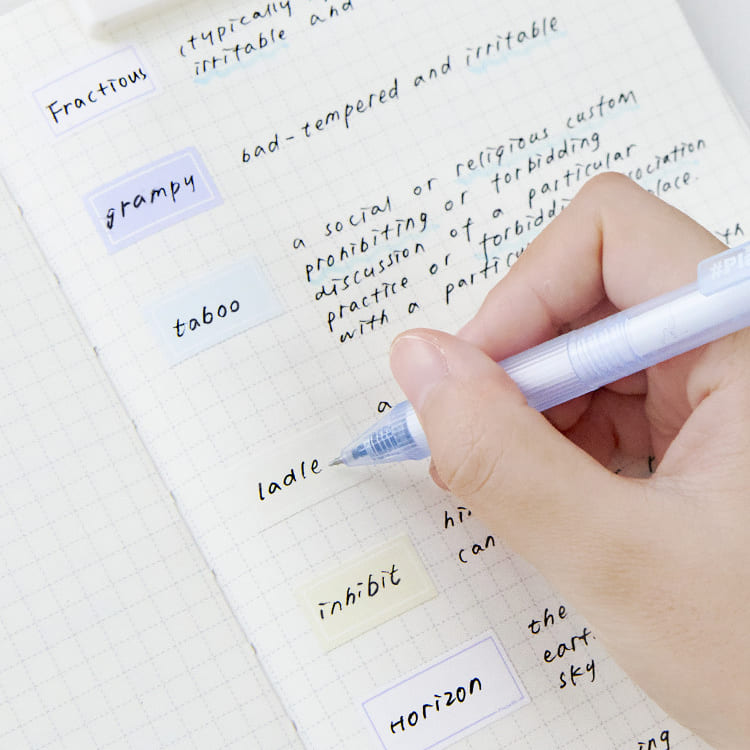 (typically
irritable and
Fractious
bad-tempered and irritable
grampy
a social or religious custom
prohibiting or forbidding
discussion of a particular
practice or forbidding association
with a particular place.
taboo
a
ladle
can
inhibit
the
sky
Horizon